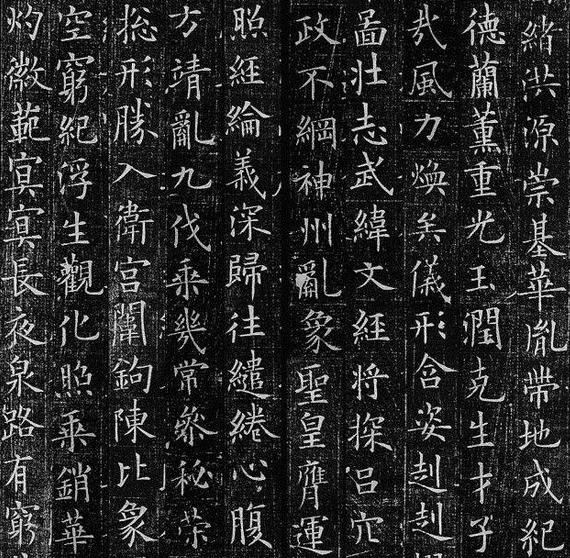 緒洪源崇基華胤帶地成紀
德蘭薰重光玉潤克生才子
哉風力煥矣儀形含姿赳赳
啚壯志武緯文經將探呂穴
政不綱神州亂象聖皇膺運
照經綸義深歸往繾綣心腹
方靖亂九伐乘幾常叅秘策
揔形勝入衛宮闈鉤陳比象
空窮紀浮生觀化照乘銷華
灼徽範冥冥長夜泉路有窮